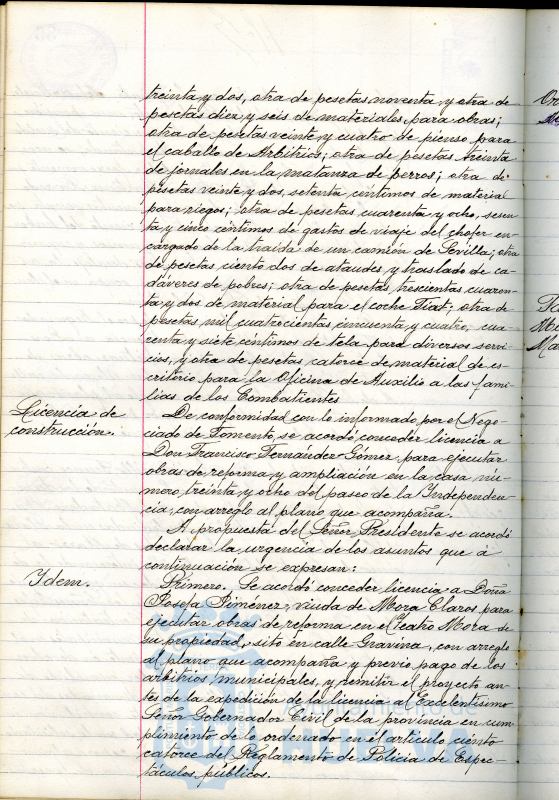 treinta y dos, otra de pesetas noventa y otra de
pesetas diez y seis de materiales para obras;
otra de pesetas veinte y cuatro de pienso para
el caballo de Arbitrios; otra de pesetas treinta
de jornales en la matanza de perros; otra de
pesetas veinte y dos, setenta céntimos de material
para riegos; otra de pesetas cuarenta y ocho, sesen-
ta y cinco céntimos de gastos de viaje del chofer en-
cargado de la traída de un camión de Sevilla; otra
de pesetas ciento dos de ataudes y traslado de ca-
dáveres de pobres; otra de pesetas trescientas cuaren-
ta y dos de material para el coche Fiat; otra de
pesetas mil cuatrocientas cincuenta y cuatro, cua-
renta y siete céntimos de tela para diversos servi-
cios, y otra de pesetas catorce de material de es-
critorio para la Oficina de Auxilio a las fami-
lias de los Combatientes
Licencia de
construcción.
De conformidad con lo informado por el Nego-
ciado de Fomento, se acordó conceder licencia a
Don Francisco Fernández Gómez para ejecutar
obras de reforma y ampliación en la casa nú-
mero treinta y ocho del paseo de la Independen-
cia, con arreglo al plano que acompaña.
A propuesta del Señor Presidente se acordó
declarar la urgencia de los asuntos que a
continuación se expresan:
Idem.
Primero. Se acordó conceder licencia a Doña
Josefa Jiménez, viuda de Mora Claros para
ejecutar obras de reforma en el Teatro Mora de
su propiedad, sito en calle Gravina, con arreglo
al plano que acompaña y previo pago de los
arbitrios municipales, y remitir el proyecto an-
tes de la expedición de la licencia al Excelentísimo
Señor Gobernador Civil de la provincia en cum-
plimiento de lo ordenado en el artículo ciento
catorce del Reglamento de Policía de Espec-
táculos públicos.